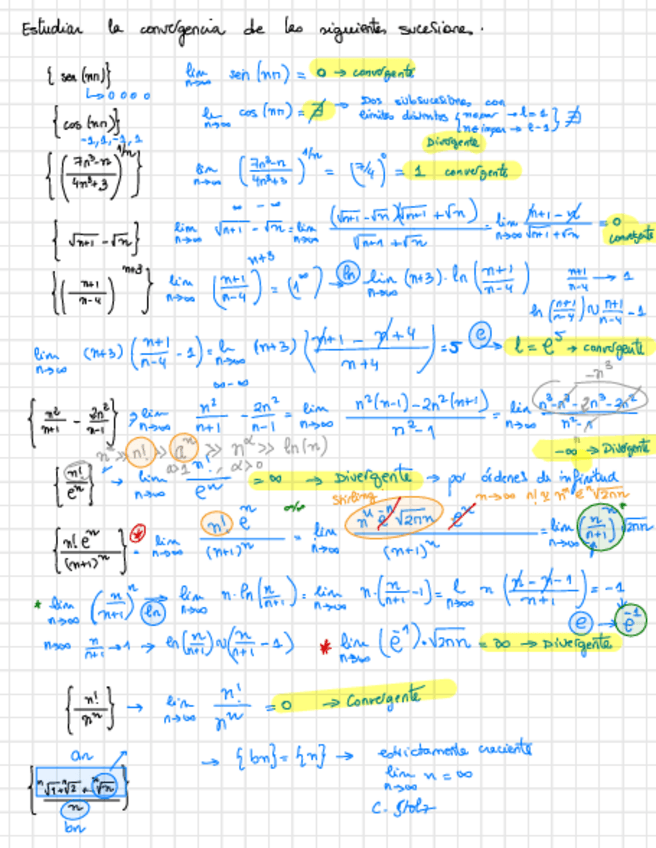 Estudiar la convergencia de las siguientes sucesiones.
{sen(nπ)} lim n→∞ sen(nπ) = 0 → convergente
↳ 0 0 0 0
{cos(nπ)} lim n→∞ cos(nπ) = ∄ → Dos subsucesiones con
límites distintos {n par → l=1 } ∄
-1, 1, -1, 1 {n impar → l=-1
Divergente
{((7n³-n)/(4n³+3))^(1/n)} lim n→∞ ((7n³-n)/(4n³+3))^(1/n) = (7/4)^0 = 1 convergente
∞ - ∞
{√n+1 - √n} lim n→∞ √n+1 - √n = lim n→∞ (√n+1 - √n)(√n+1 + √n)/(√n+1 + √n) = lim n→∞ (n+1-n)/(√n+1 + √n) = 0 convergente
{((n+1)/(n-4))^(n+3)} lim n→∞ ((n+1)/(n-4))^(n+3) = (1^∞) → ln → lim n→∞ (n+3)·ln((n+1)/(n-4)) (n+1)/(n-4) → 1
ln((n+1)/(n-4)) ~ (n+1)/(n-4) - 1
lim n→∞ (n+3)((n+1)/(n-4) - 1) = l n→∞ (n+3)((n+1-n+4)/(n+4)) = 5 e → l = e⁵ → convergente
∞ - ∞ -n³
{n²/(n+1) - 2n²/(n-1)} → lim n→∞ n²/(n+1) - 2n²/(n-1) = lim n→∞ (n²(n-1) - 2n²(n+1))/(n²-1) = lim n→∞ (n³-n²-2n³-2n²)/(n²-1)
-∞ → Divergente
nⁿ >> n! >> aⁿ >> n^α >> ln(n)
a>1, α>0
{n!/eⁿ} → lim n→∞ n!/eⁿ = ∞ → Divergente → por órdenes de infinitud
Stirling n→∞ n! ≈ nⁿ e⁻ⁿ √2πn
{n! eⁿ/(n+1)ⁿ} * = lim n→∞ n! eⁿ/(n+1)ⁿ = ∞/∞ lim n→∞ nⁿ e⁻ⁿ √2πn eⁿ/(n+1)ⁿ = lim n→∞ (n/(n+1))ⁿ √2πn
* lim n→∞ (n/(n+1))ⁿ ln → lim n→∞ n·ln(n/(n+1)) = lim n→∞ n·(n/(n+1) - 1) = l n→∞ n((n-n-1)/(n+1)) = -1
e → e⁻¹
n→∞ n/(n+1) → 1 → ln(n/(n+1)) ~ (n/(n+1) - 1) * lim n→∞ (e⁻¹)·√2πn = ∞ → Divergente
{n!/nⁿ} → lim n→∞ n!/nⁿ = 0 → Convergente
an
→ {bn} = {n} → estrictamente creciente
lim n→∞ n = ∞
n
C. Stolz
bn